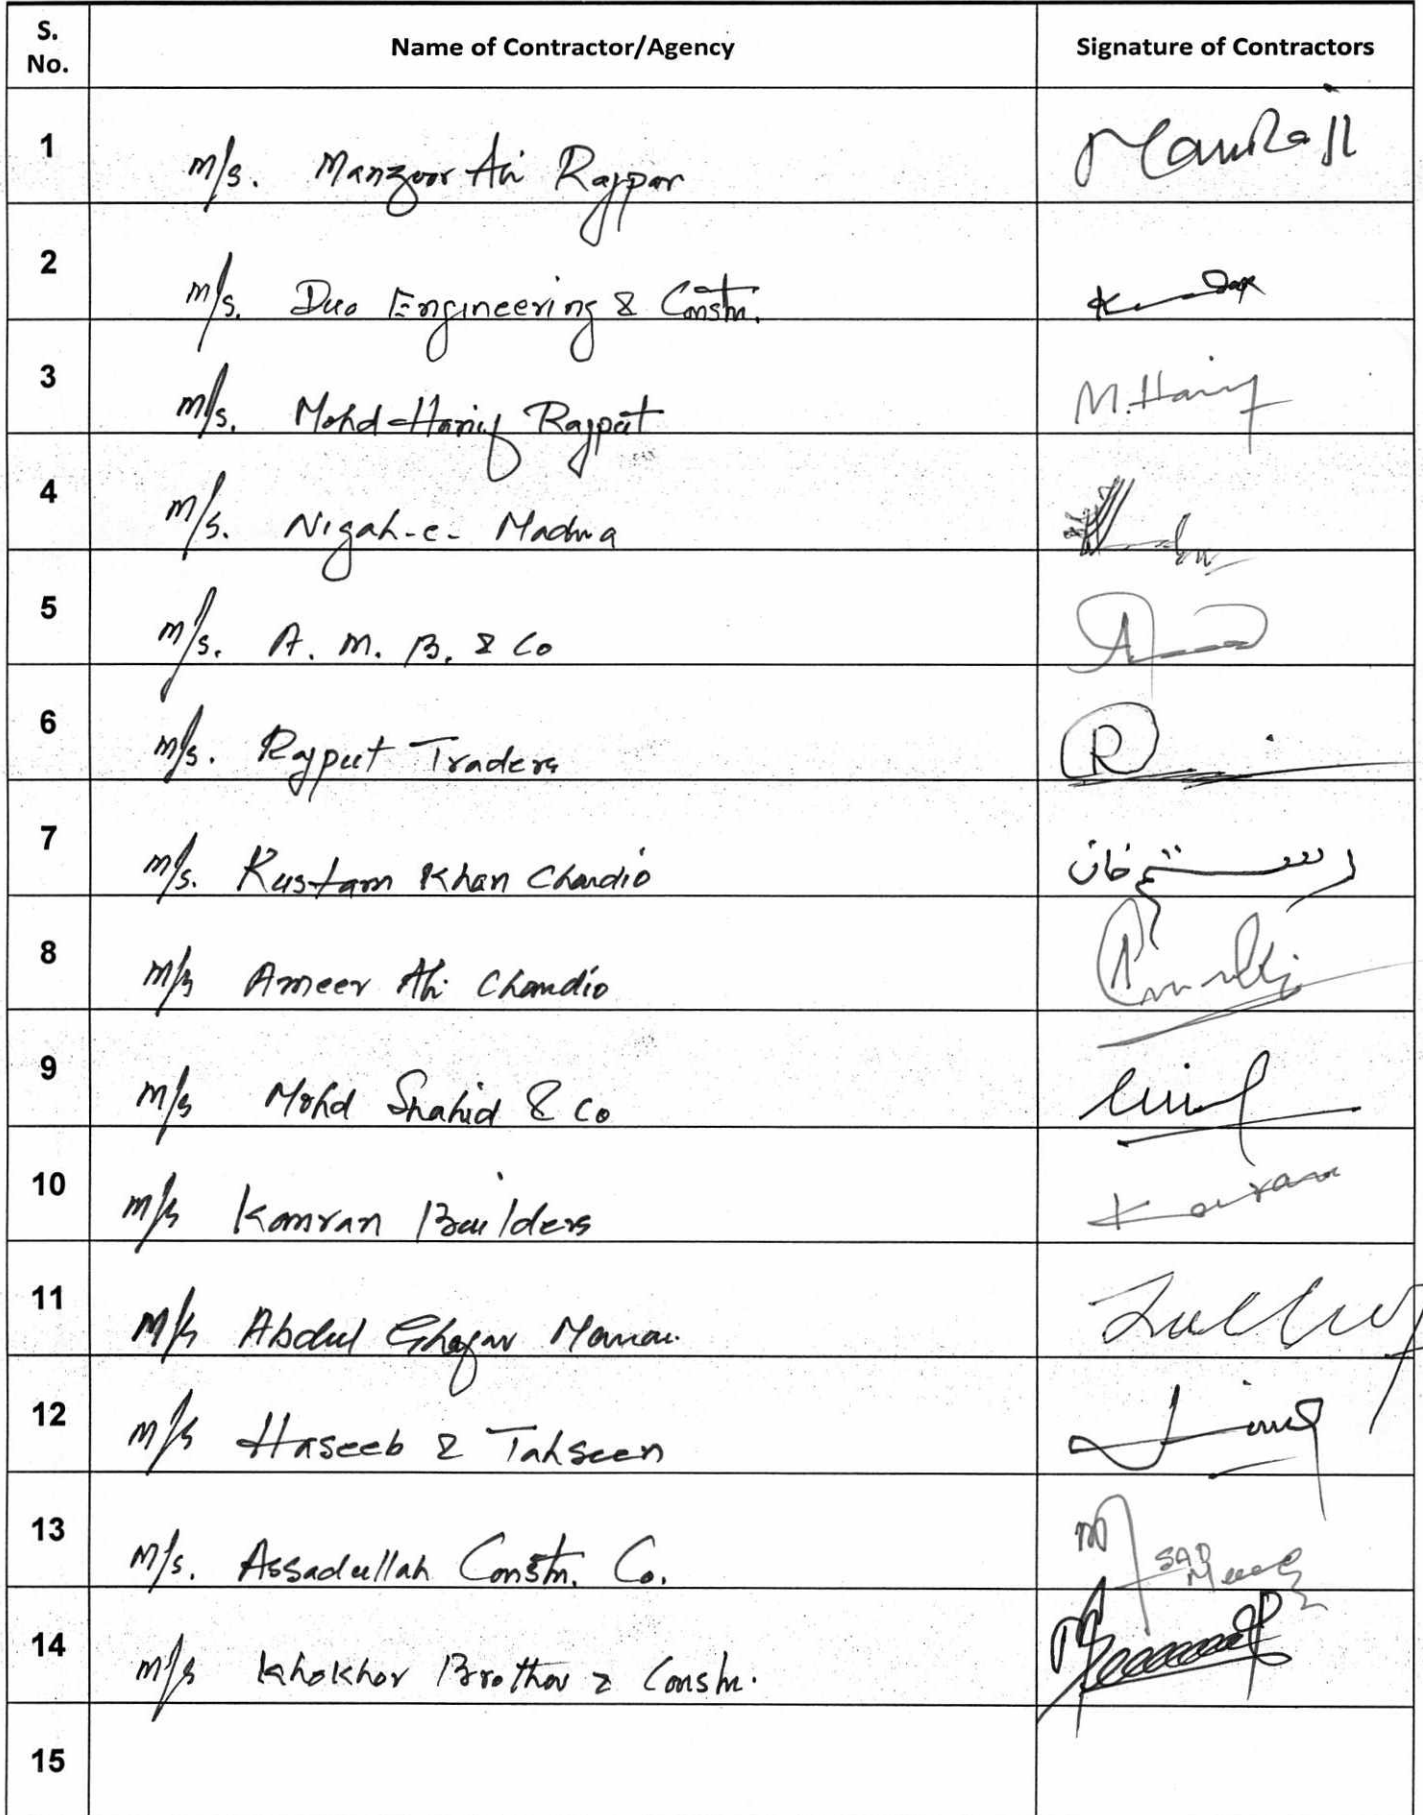 S. No. Name of Contractor/Agency Signature of Contractors
1 M/s. Manzoor Ali Rajpar
2 M/s. Duo Engineering & Constn.
3 M/s. Mohd Hanif Rajput M. Hanif
4 M/s. Nigah-e- Madina
5 M/s. A. M. B. & Co
6 M/s. Rajput Traders R
7 M/s. Rustam Khan Chandio رستم خان
8 M/s Ameer Ali Chandio
9 M/s Mohd Shahid & Co
10 M/s Kamran Builders Kamran
11 M/s Abdul Ghafar
12 M/s Haseeb & Tahseen
13 M/s. Assadullah Constn. Co.
14 M/s Khokhar Brother & Constn.
15